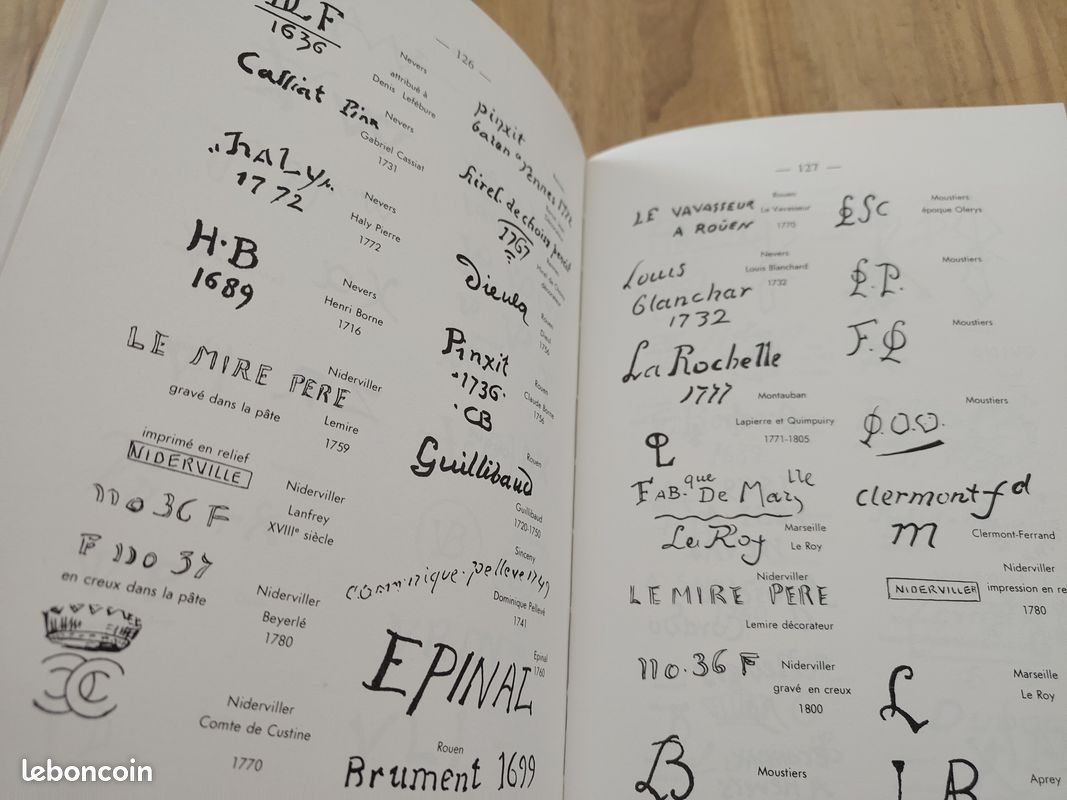 — 126 —
1636
Nevers
attribué à
Denis Lefébure
Cassiat Pinx
Nevers
Gabriel Cassiat
1731
HALY
1772
Nevers
Haly Pierre
1772
H·B
1689
Nevers
Henri Borne
1716
LE MIRE PERE
gravé dans la pâte
Niderviller
Lemire
1759
imprimé en relief
NIDERVILLE
no 36 F
Niderviller
Lanfrey
XVIIIe siècle
F no 37
en creux dans la pâte
Niderviller
Beyerlé
1780
Niderviller
Comte de Custine
1770
pinxit
1772
hirel. de choisy
1767
Dieula
Rouen
Dieul
1756
Pinxit
·1736·
·CB
Rouen
Claude Borne
1756
Guillibaud
Rouen
Guillibaud
1720-1750
Sinceny
Dominique Pellevé
1741
EPINAL
Epinal
1760
Rouen
Brument 1699
— 127 —
LE VAVASSEUR
A ROÜEN
Rouen
Le Vavasseur
1770
Louis
Glanchar
1732
Nevers
Louis Blanchard
1732
La Rochelle
1777
Montauban
Lapierre et Quimpuiry
1771-1805
FAB.que De Mars lle
Le Roy
Marseille
Le Roy
LEMIRE PERE
Niderviller
Lemire décorateur
no. 36 F
Niderviller
gravé en creux
1800
B
Moustiers
Sc
Moustiers
époque Olerys
P.
Moustiers
F.
Moustiers
Moustiers
clermont fd
m
Clermont-Ferrand
NIDERVILLER
Niderviller
impression en re
1780
L
Marseille
Le Roy
Aprey
leboncoin